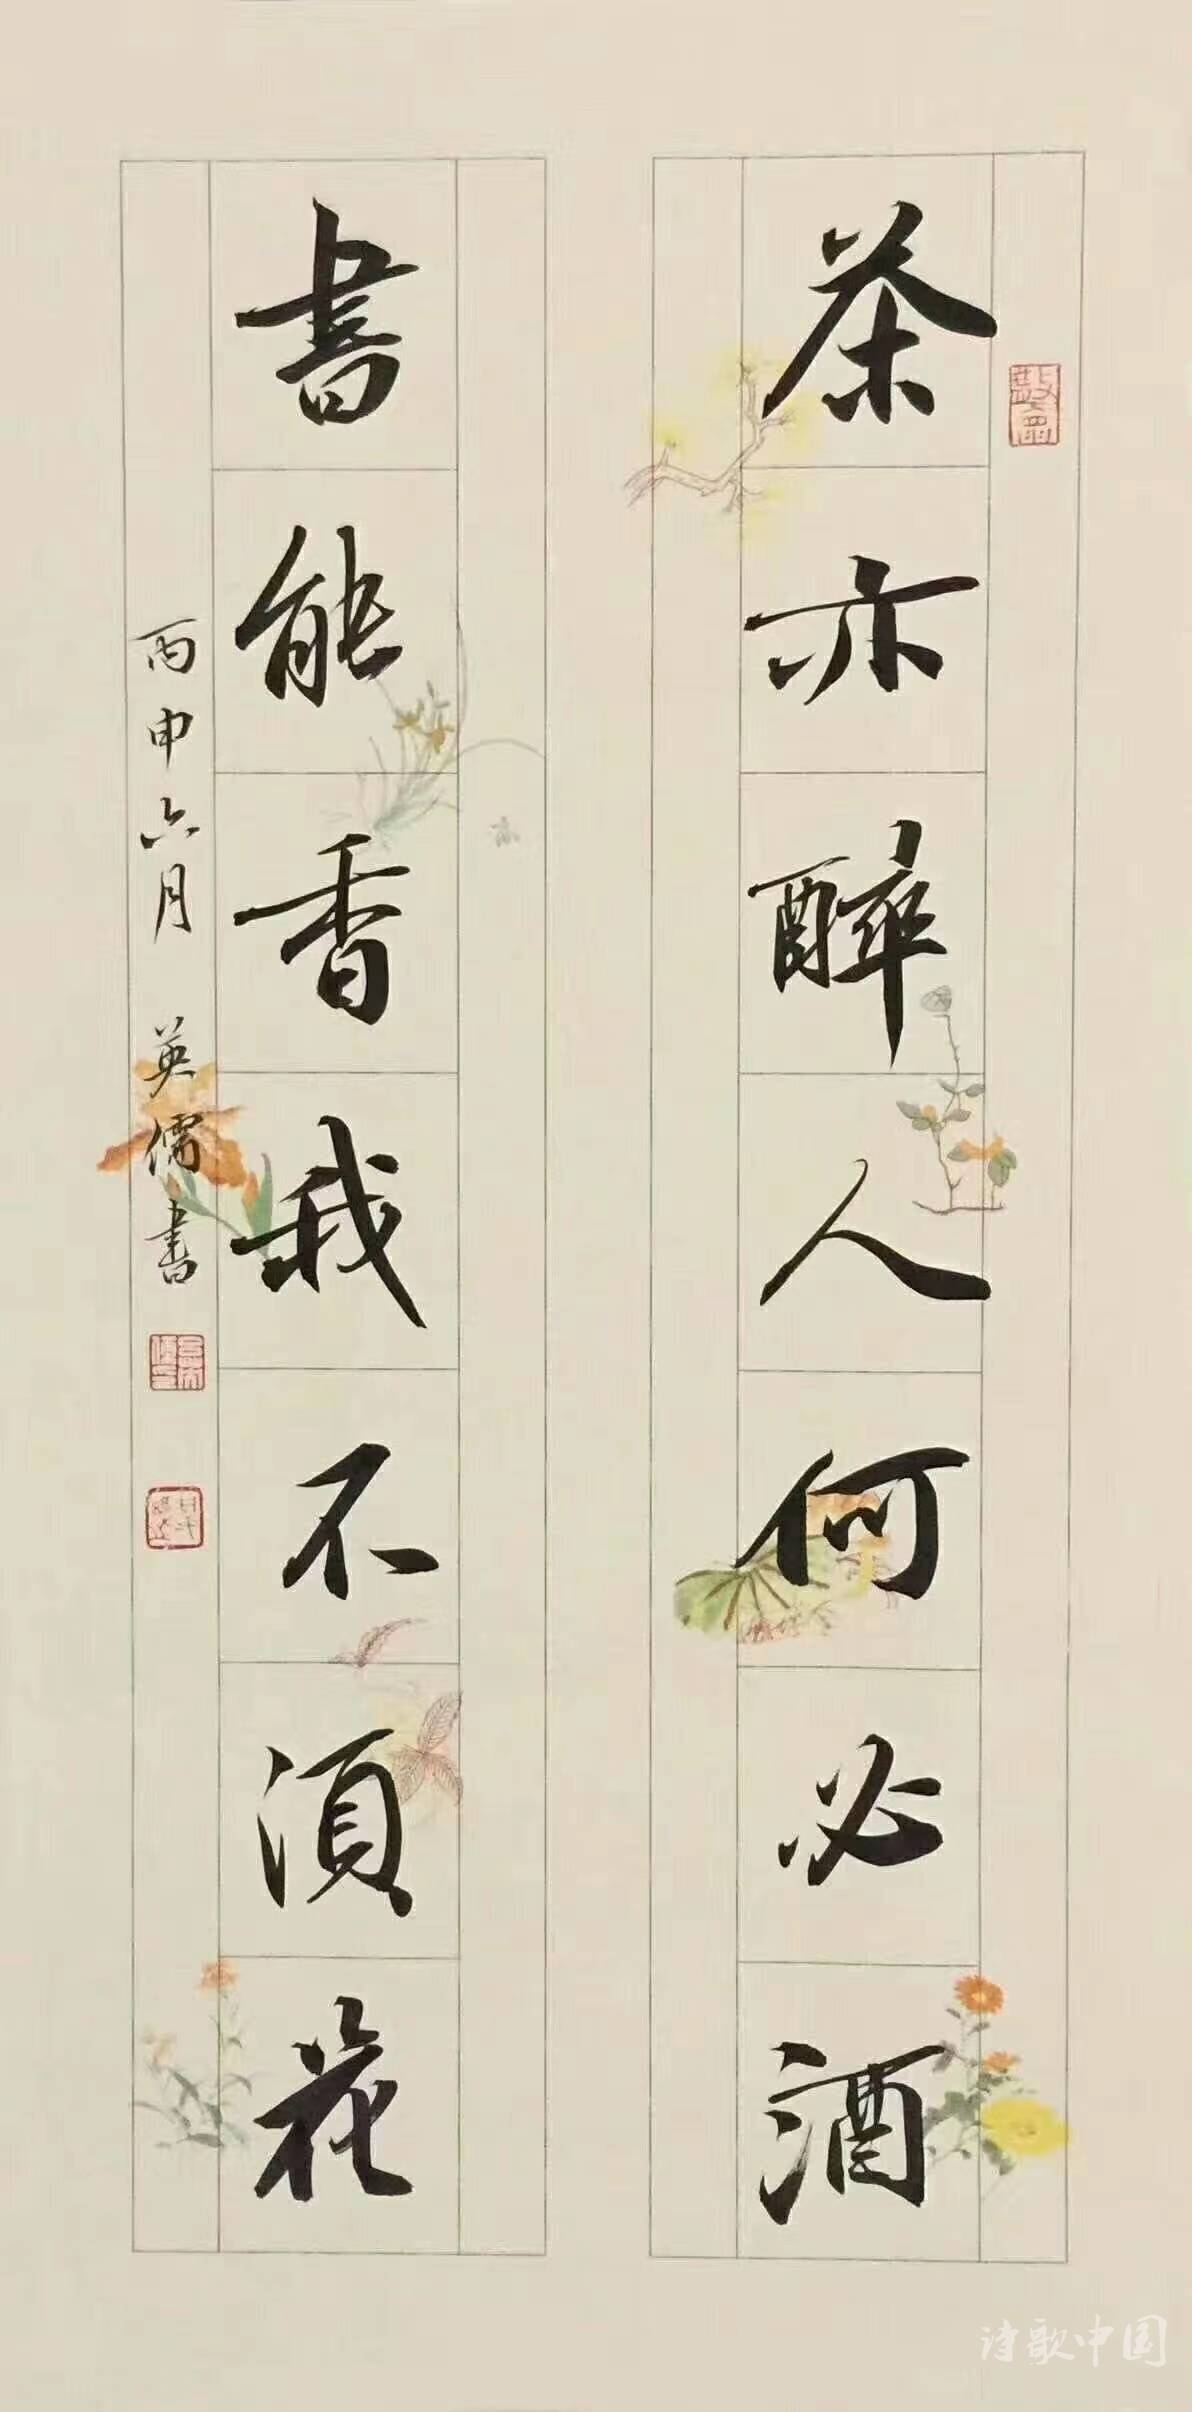 茶亦醉人何必酒
書能香我不須花
丙申六月 英儒書
诗歌中国